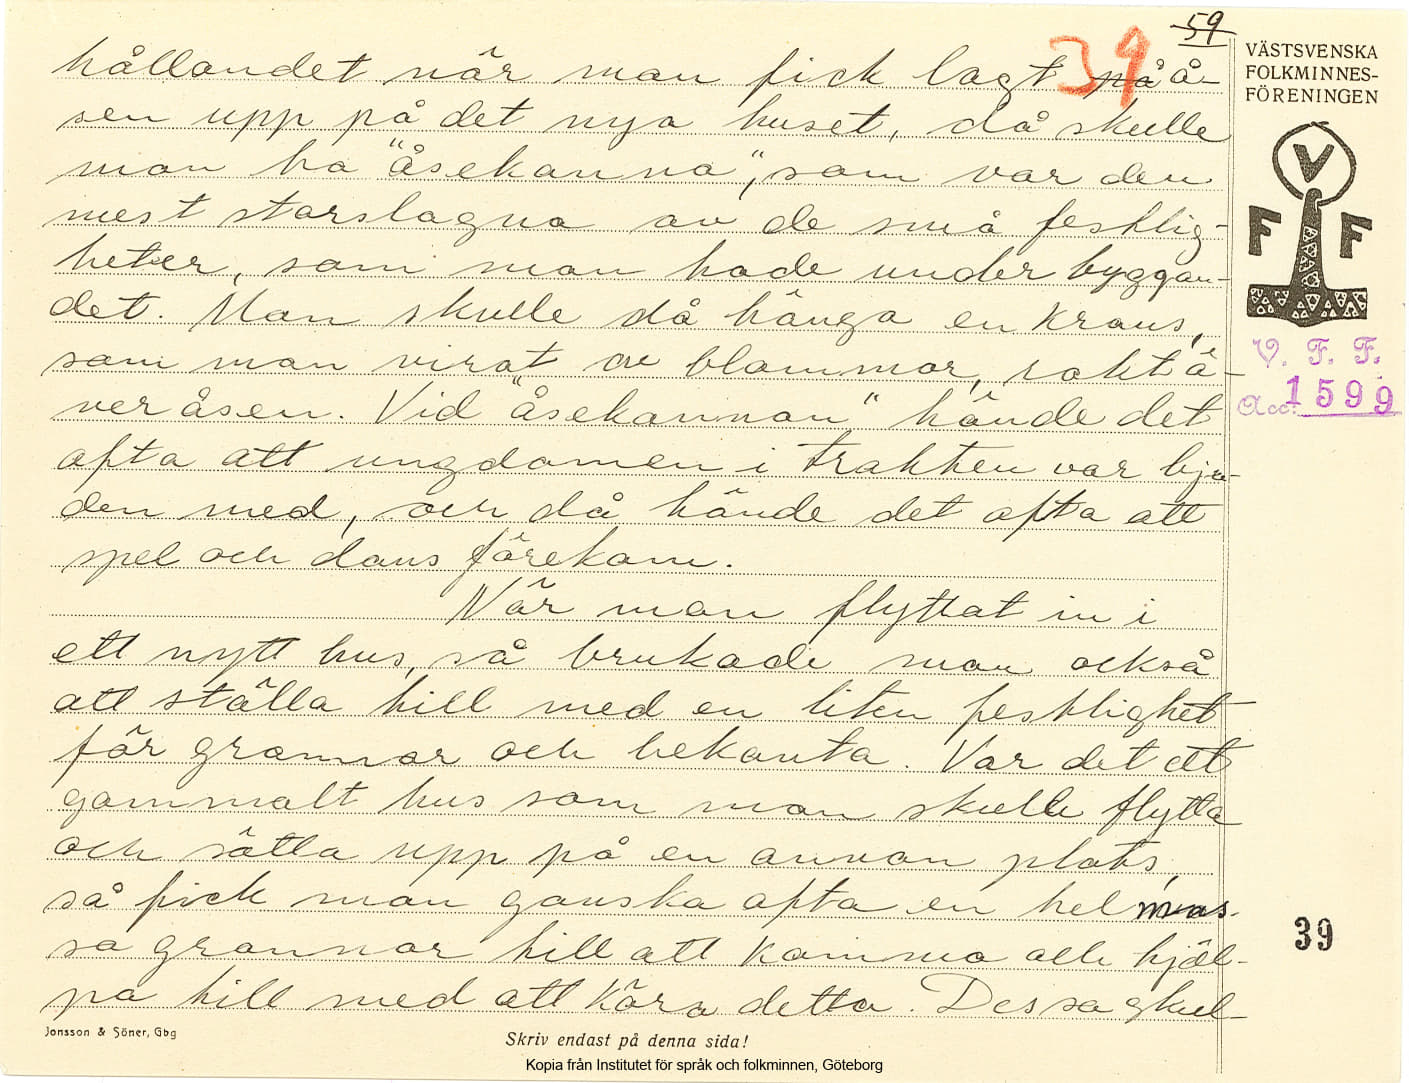 59
39
VÄSTSVENSKA
FOLKMINNES-
FÖRENINGEN
V
F F
V. F. F.
Acc. 1599
hållandet när man fick lagt på å-
sen upp på det nya huset, då skulle
man ha "åsekanna", som var den
mest storslagna av de små festlig-
heter, som man hade under byggan-
det. Man skulle då hänga en krans,
som man virat av blommor, rakt ö-
ver åsen. Vid "åsekannan" hände det
ofta att ungdomen i trakten var bju-
den med, och då hände det ofta att
spel och dans förekom.
När man flyttat in i
ett nytt hus, så brukade man också
att ställa till med en liten festlighet
för grannar och bekanta. Var det ett
gammalt hus som man skulle flytta
och sätta upp på en annan plats,
så fick man ganska ofta en hel mas-
sa grannar till att komma och hjäl-
pa till med att köra detta. Dessa skul-
39
Jonsson & Söner, Gbg
Skriv endast på denna sida!
Kopia från Institutet för språk och folkminnen, Göteborg